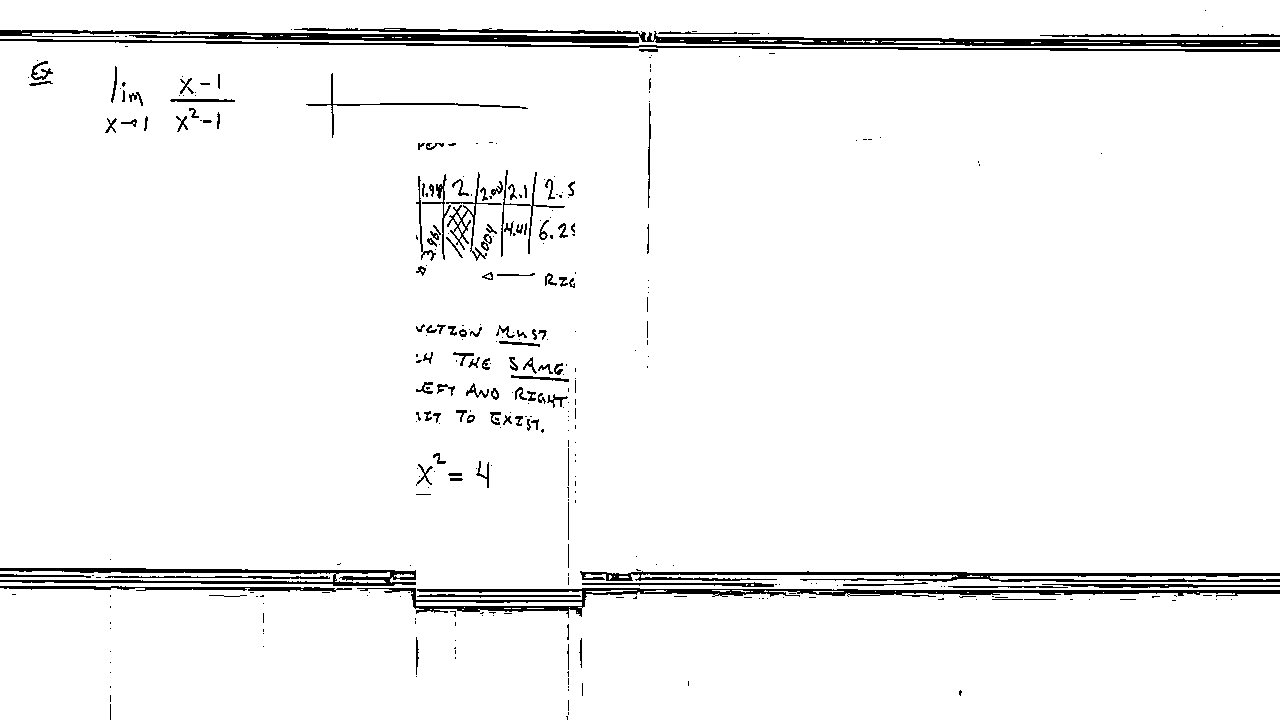 Ex lim x→1 x-1 / x²-1
1.99 2 2.001 2.1 2.5
3.961 4.004 4.41 6.25
MUST
THE SAME
AND RIGHT
TO EXIST.
x² = 4